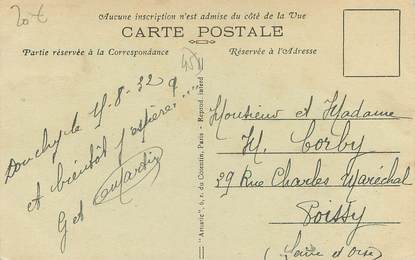 20€
Aucune inscription n'est admise du côté de la Vue
CARTE POSTALE
Partie réservée à la Correspondance
Réservée à l'Adresse
Douchy le 15-8-32
et bientôt j'espère...
Get
"Artistic" 6, r. du Cotentin, Paris - Reprod. interd
Monsieur et Madame
H. Corby
29 Rue Charles Maréchal
Poissy
(Seine et Oise)